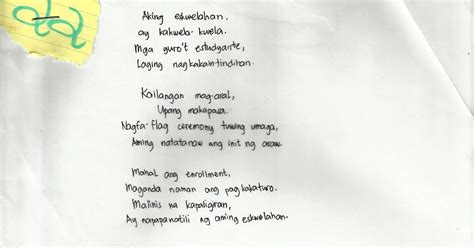 Aking eskwelahan,
ay kakwela-kwela.
Mga guro't estudyante,
Laging nagkakaintindihan.
Kailangan mag-aral,
Upang makapasa.
Nagfa-flag ceremony tuwing umaga,
Aming natatanaw ang init ng araw.
Mahal ang enrollment,
Maganda naman ang pagkakaturo.
Malinis na kapaligiran,
Ay napapanatili ng aming eskwelahan.